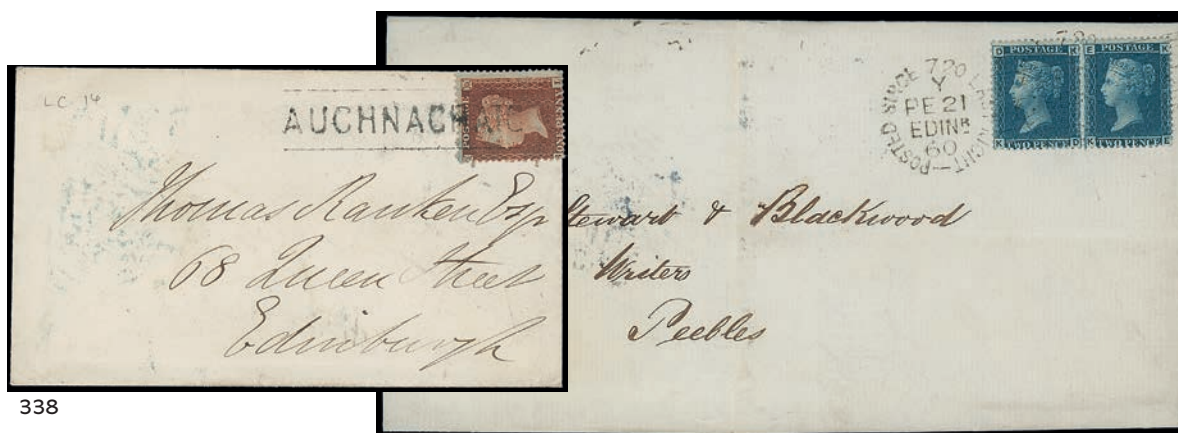 LC 14
AUCHNACRAIG
ONE PENNY
Thomas Ranken Esqr
68 Queen Street
Edinburgh
338
7.20
POSTED SINCE 7.20 LAST NIGHT
Y
FE 21
EDINB
60
D POSTAGE K
K TWO PENCE D
E POSTAGE K
K TWO PENCE E
Stewart & Blackwood
Writers
Peebles